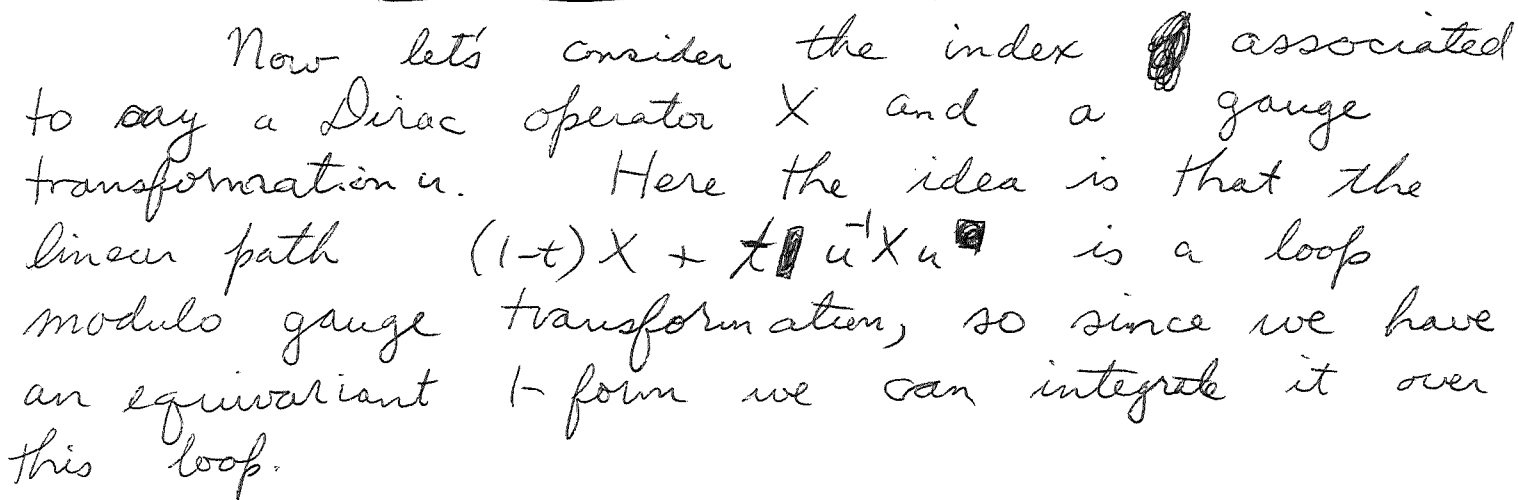 Now let's consider the index associated
to say a Dirac operator X and a gauge
transformation u. Here the idea is that the
linear path (1-t)X + t u⁻¹Xu is a loop
modulo gauge transformation, so since we have
an equivariant 1-form we can integrate it over
this loop.